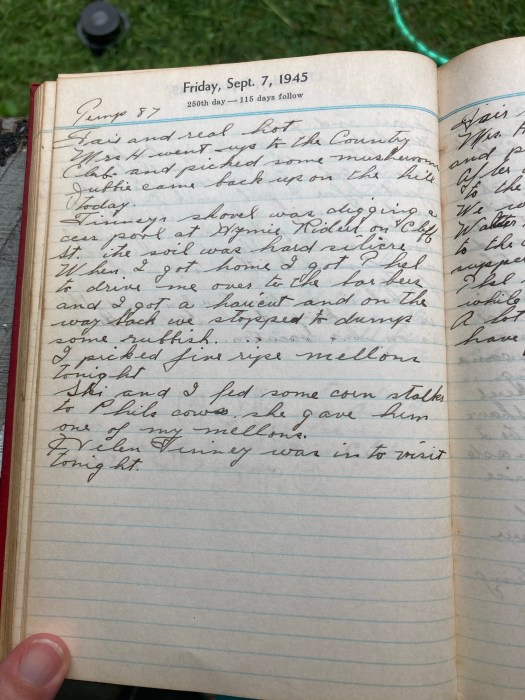 Friday, Sept. 7, 1945
250th day — 115 days follow
Temp 87
Fair and real hot
Mrs H went up to the Country
Club and picked some mushrooms
came back up on the hill
today.
Finneys shovel was digging a
cess pool at on Cliff
St. the soil was hard
When I got home I got Phil
to drive me over to the barbers
and I got a haircut and on the
way back we stopped to dump
some rubbish.
I picked five ripe mellons
tonight
Ski and I fed some corn stalks
to Phils cows, she gave him
one of my mellons.
Helen Finney was in to visit
tonight.
Fair
Mrs. H
and p
After
To the
We w
Walter
to the
suppe
while
A lot
have